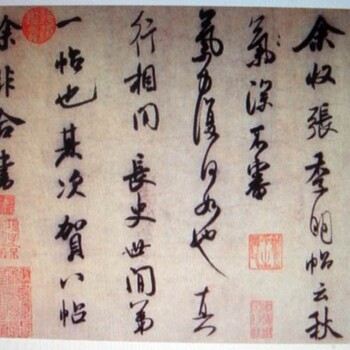 余收張季明帖云秋
氣深不審
氣力復何如也真
行相間長史世間第
一帖也其次賀八帖
余非合書